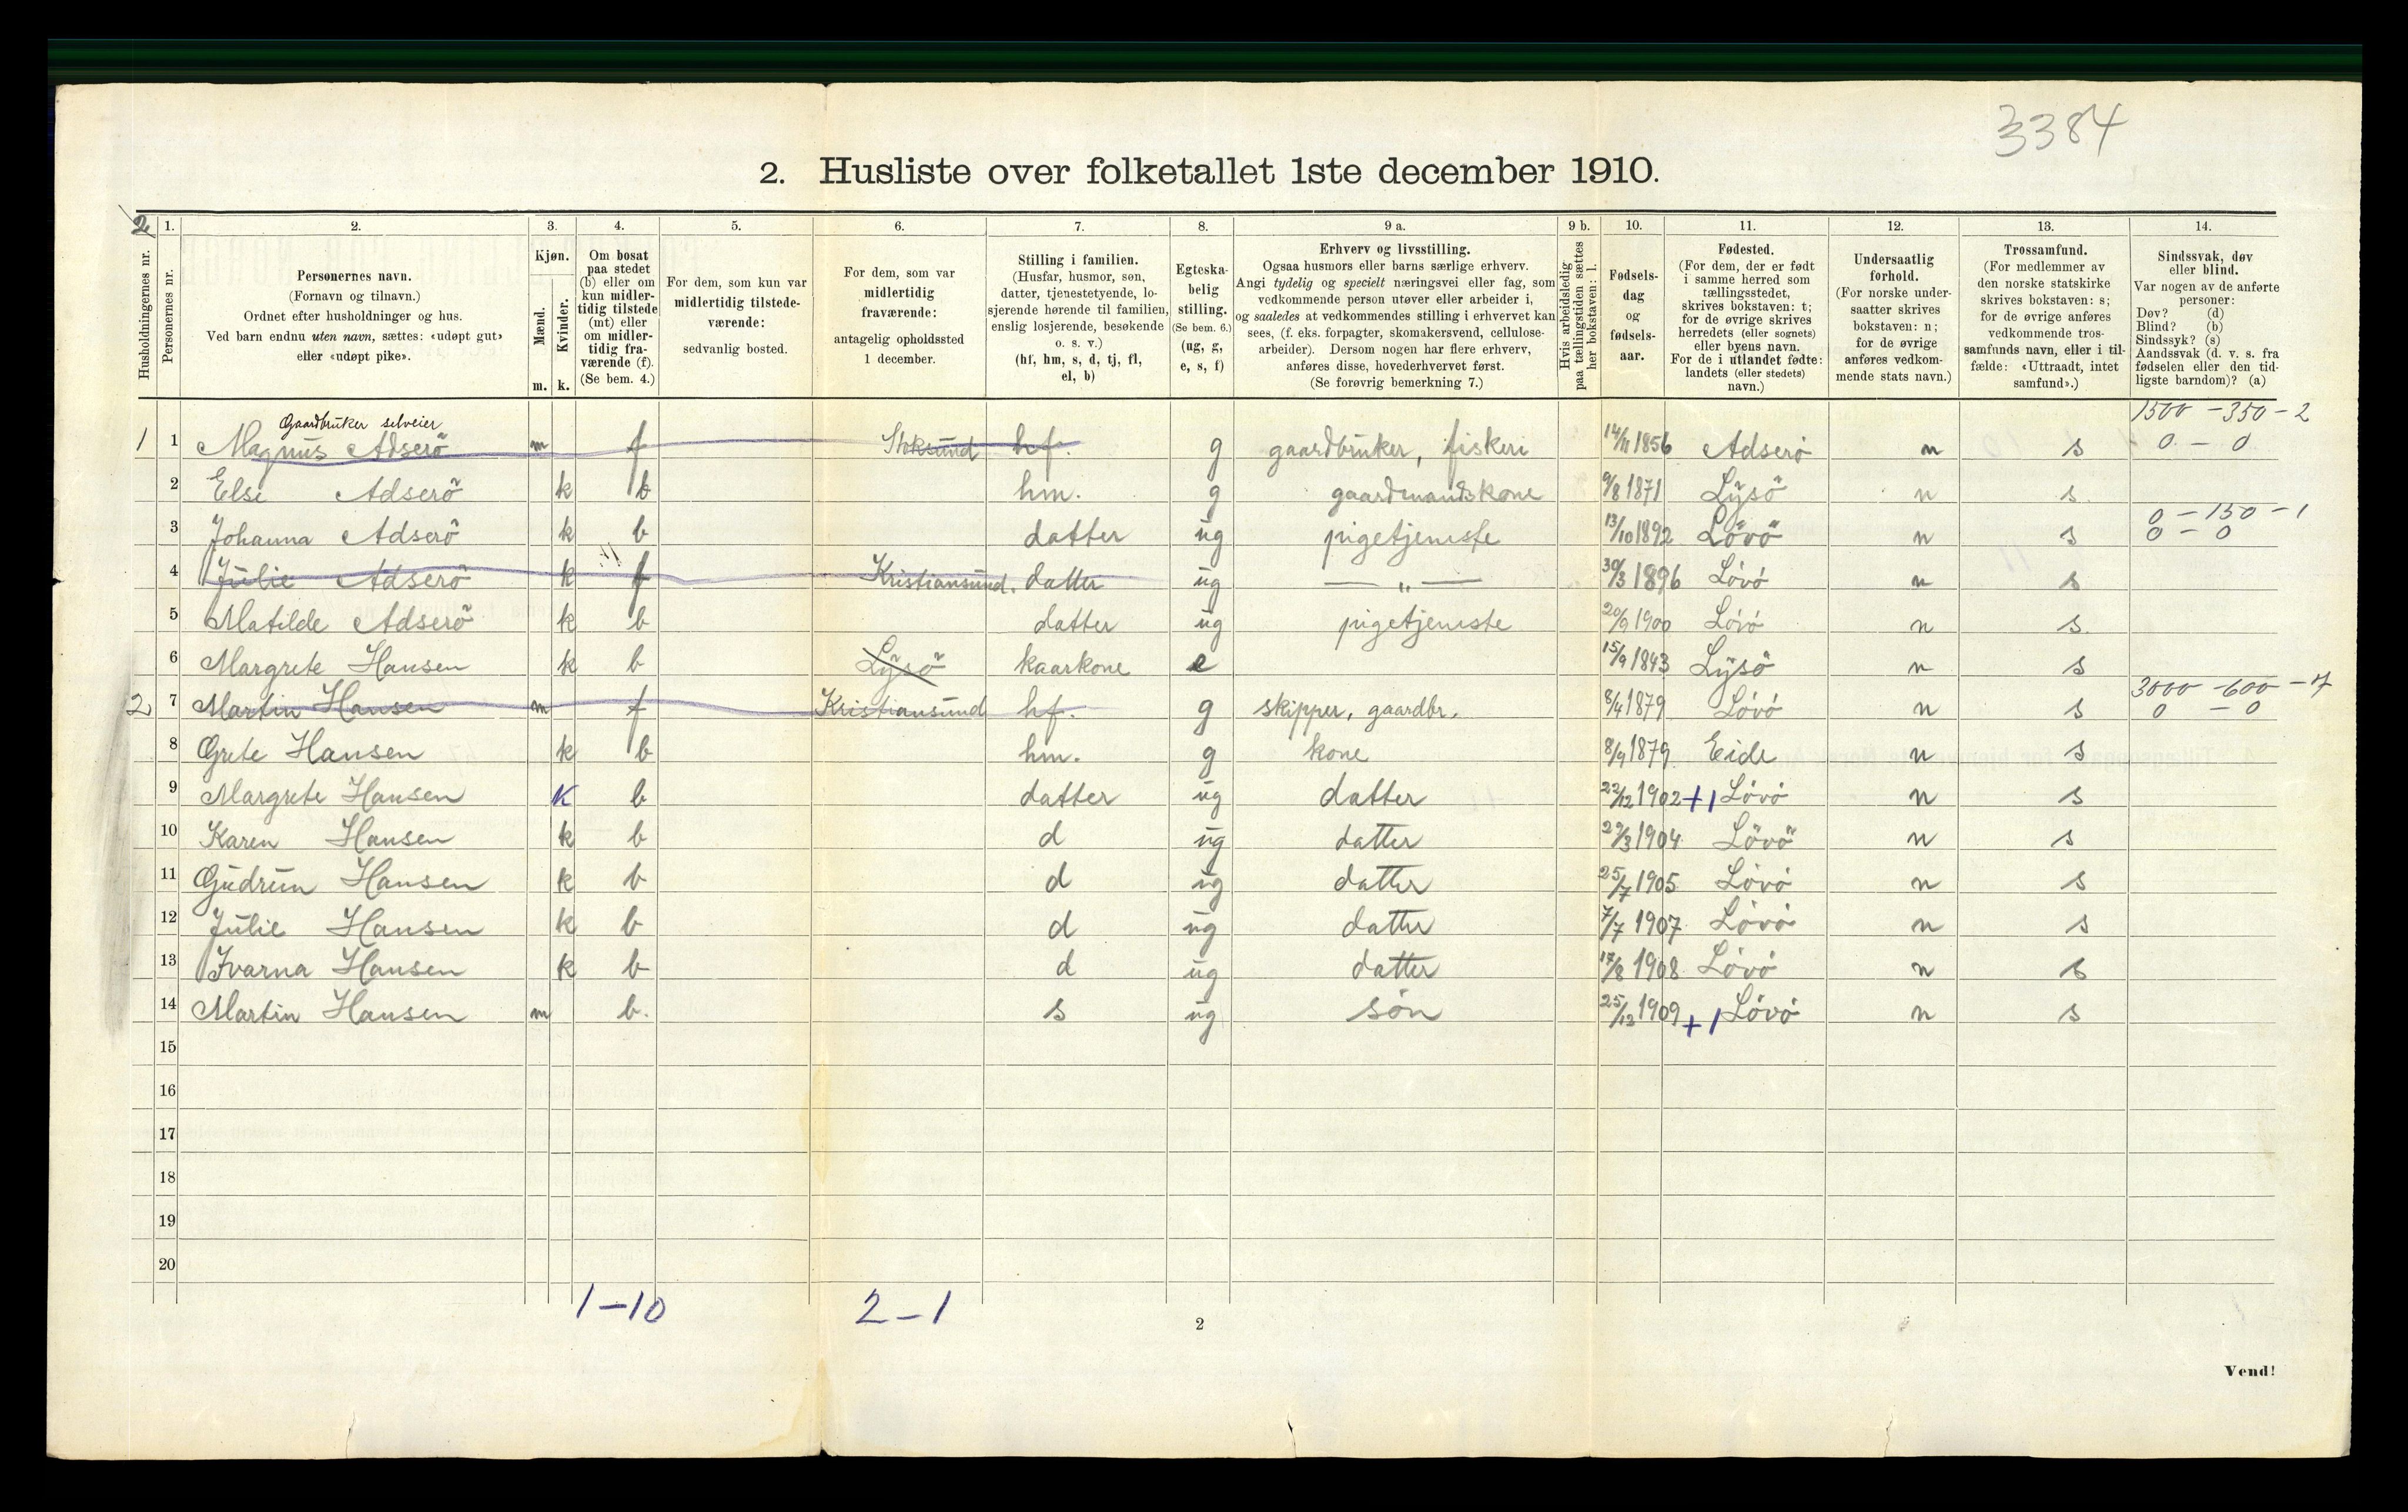 3384
2. Husliste over folketallet 1ste december 1910.
2
1. 2. 3. 4. 5. 6. 7. 8. 9 a. 9 b. 10. 11. 12. 13. 14.
Husholdningernes nr.
Personernes nr.
Personernes navn.
(Fornavn og tilnavn.)
Ordnet efter husholdninger og hus.
Ved barn endnu uten navn, sættes: «udøpt gut»
eller «udøpt pike».
Kjøn.
Mænd.
Kvinder.
m. k.
Om bosat
paa stedet
(b) eller om
kun midler-
tidig tilstede
(mt) eller
om midler-
tidig fra-
værende (f).
(Se bem. 4.)
For dem, som kun var
midlertidig tilstede-
værende:
sedvanlig bosted.
For dem, som var
midlertidig
fraværende:
antagelig opholdssted
1 december.
Stilling i familien.
(Husfar, husmor, søn,
datter, tjenestetyende, lo-
sjerende hørende til familien,
enslig losjerende, besøkende
o. s. v.)
(hf, hm, s, d, tj, fl,
el, b)
Egteska-
belig
stilling.
(Se bem. 6.)
(ug, g,
e, s, f)
Erhverv og livsstilling.
Ogsaa husmors eller barns særlige erhverv.
Angi tydelig og specielt næringsvei eller fag, som
vedkommende person utøver eller arbeider i,
og saaledes at vedkommendes stilling i erhvervet kan
sees, (f. eks. forpagter, skomakersvend, cellulose-
arbeider). Dersom nogen har flere erhverv,
anføres disse, hovederhvervet først.
(Se forøvrig bemerkning 7.)
Hvis arbeidsledig
paa tællingstiden sættes
her bokstaven: l.
Fødsels-
dag
og
fødsels-
aar.
Fødested.
(For dem, der er født
i samme herred som
tællingsstedet,
skrives bokstaven: t;
for de øvrige skrives
herredets (eller sognets)
eller byens navn.
For de i utlandet fødte:
landets (eller stedets)
navn.)
Undersaatlig
forhold.
(For norske under-
saatter skrives
bokstaven: n;
for de øvrige
anføres vedkom-
mende stats navn.)
Trossamfund.
(For medlemmer av
den norske statskirke
skrives bokstaven: s;
for de øvrige anføres
vedkommende tros-
samfunds navn, eller i til-
fælde: «Uttraadt, intet
samfund».)
Sindssvak, døv
eller blind.
Var nogen av de anførte
personer:
Døv? (d)
Blind? (b)
Sindssyk? (s)
Aandssvak (d. v. s. fra
fødselen eller den tid-
ligste barndom)? (a)
Gaardbruker selveier
1500 - 350 - 2
1 1 Magnus Adserö m f Stoksund hf. g gaardbruker, fiskeri 14/11 1856 Adserö n s 0 - 0
2 Else Adserö k b hm. g gaardmandskone 9/8 1871 Lysö n s.
0 - 150 - 1
3 Johanna Adserö k b datter ug pigetjeneste 13/10 1892 Lövö n s 0 - 0
4 Julie Adserö k f Kristiansund. datter ug — „ — 30/3 1896 Lövö n s
5 Matilde Adserö k b datter ug pigetjeneste 20/9 1900 Lövö n s.
6 Margrete Hansen k b Lysö kaarkone e 15/9 1843 Lysö n s
3000 - 600 - 7
2 7 Martin Hansen m f Kristiansund hf. g skipper, gaardbr. 8/4 1879 Lövö n s 0 - 0
8 Grete Hansen k b hm. g kone 8/9 1879 Eide n s
9 Margrete Hansen K b datter ug datter 22/12 1902 +1 Lövö n s
10 Karen Hansen k b d ug datter 29/3 1904 Lövö n s
11 Gudrun Hansen k b d ug datter 25/7 1905 Lövö n s
12 Julie Hansen k b d ug datter 7/7 1907 Lövö n s
13 Ivarna Hansen k b d ug datter 17/8 1908 Lövö n s
14 Martin Hansen m b. s ug sön 25/12 1909 +1 Lövö n s
15
16
17
18
19
20
1-10 2-1
2
Vend!